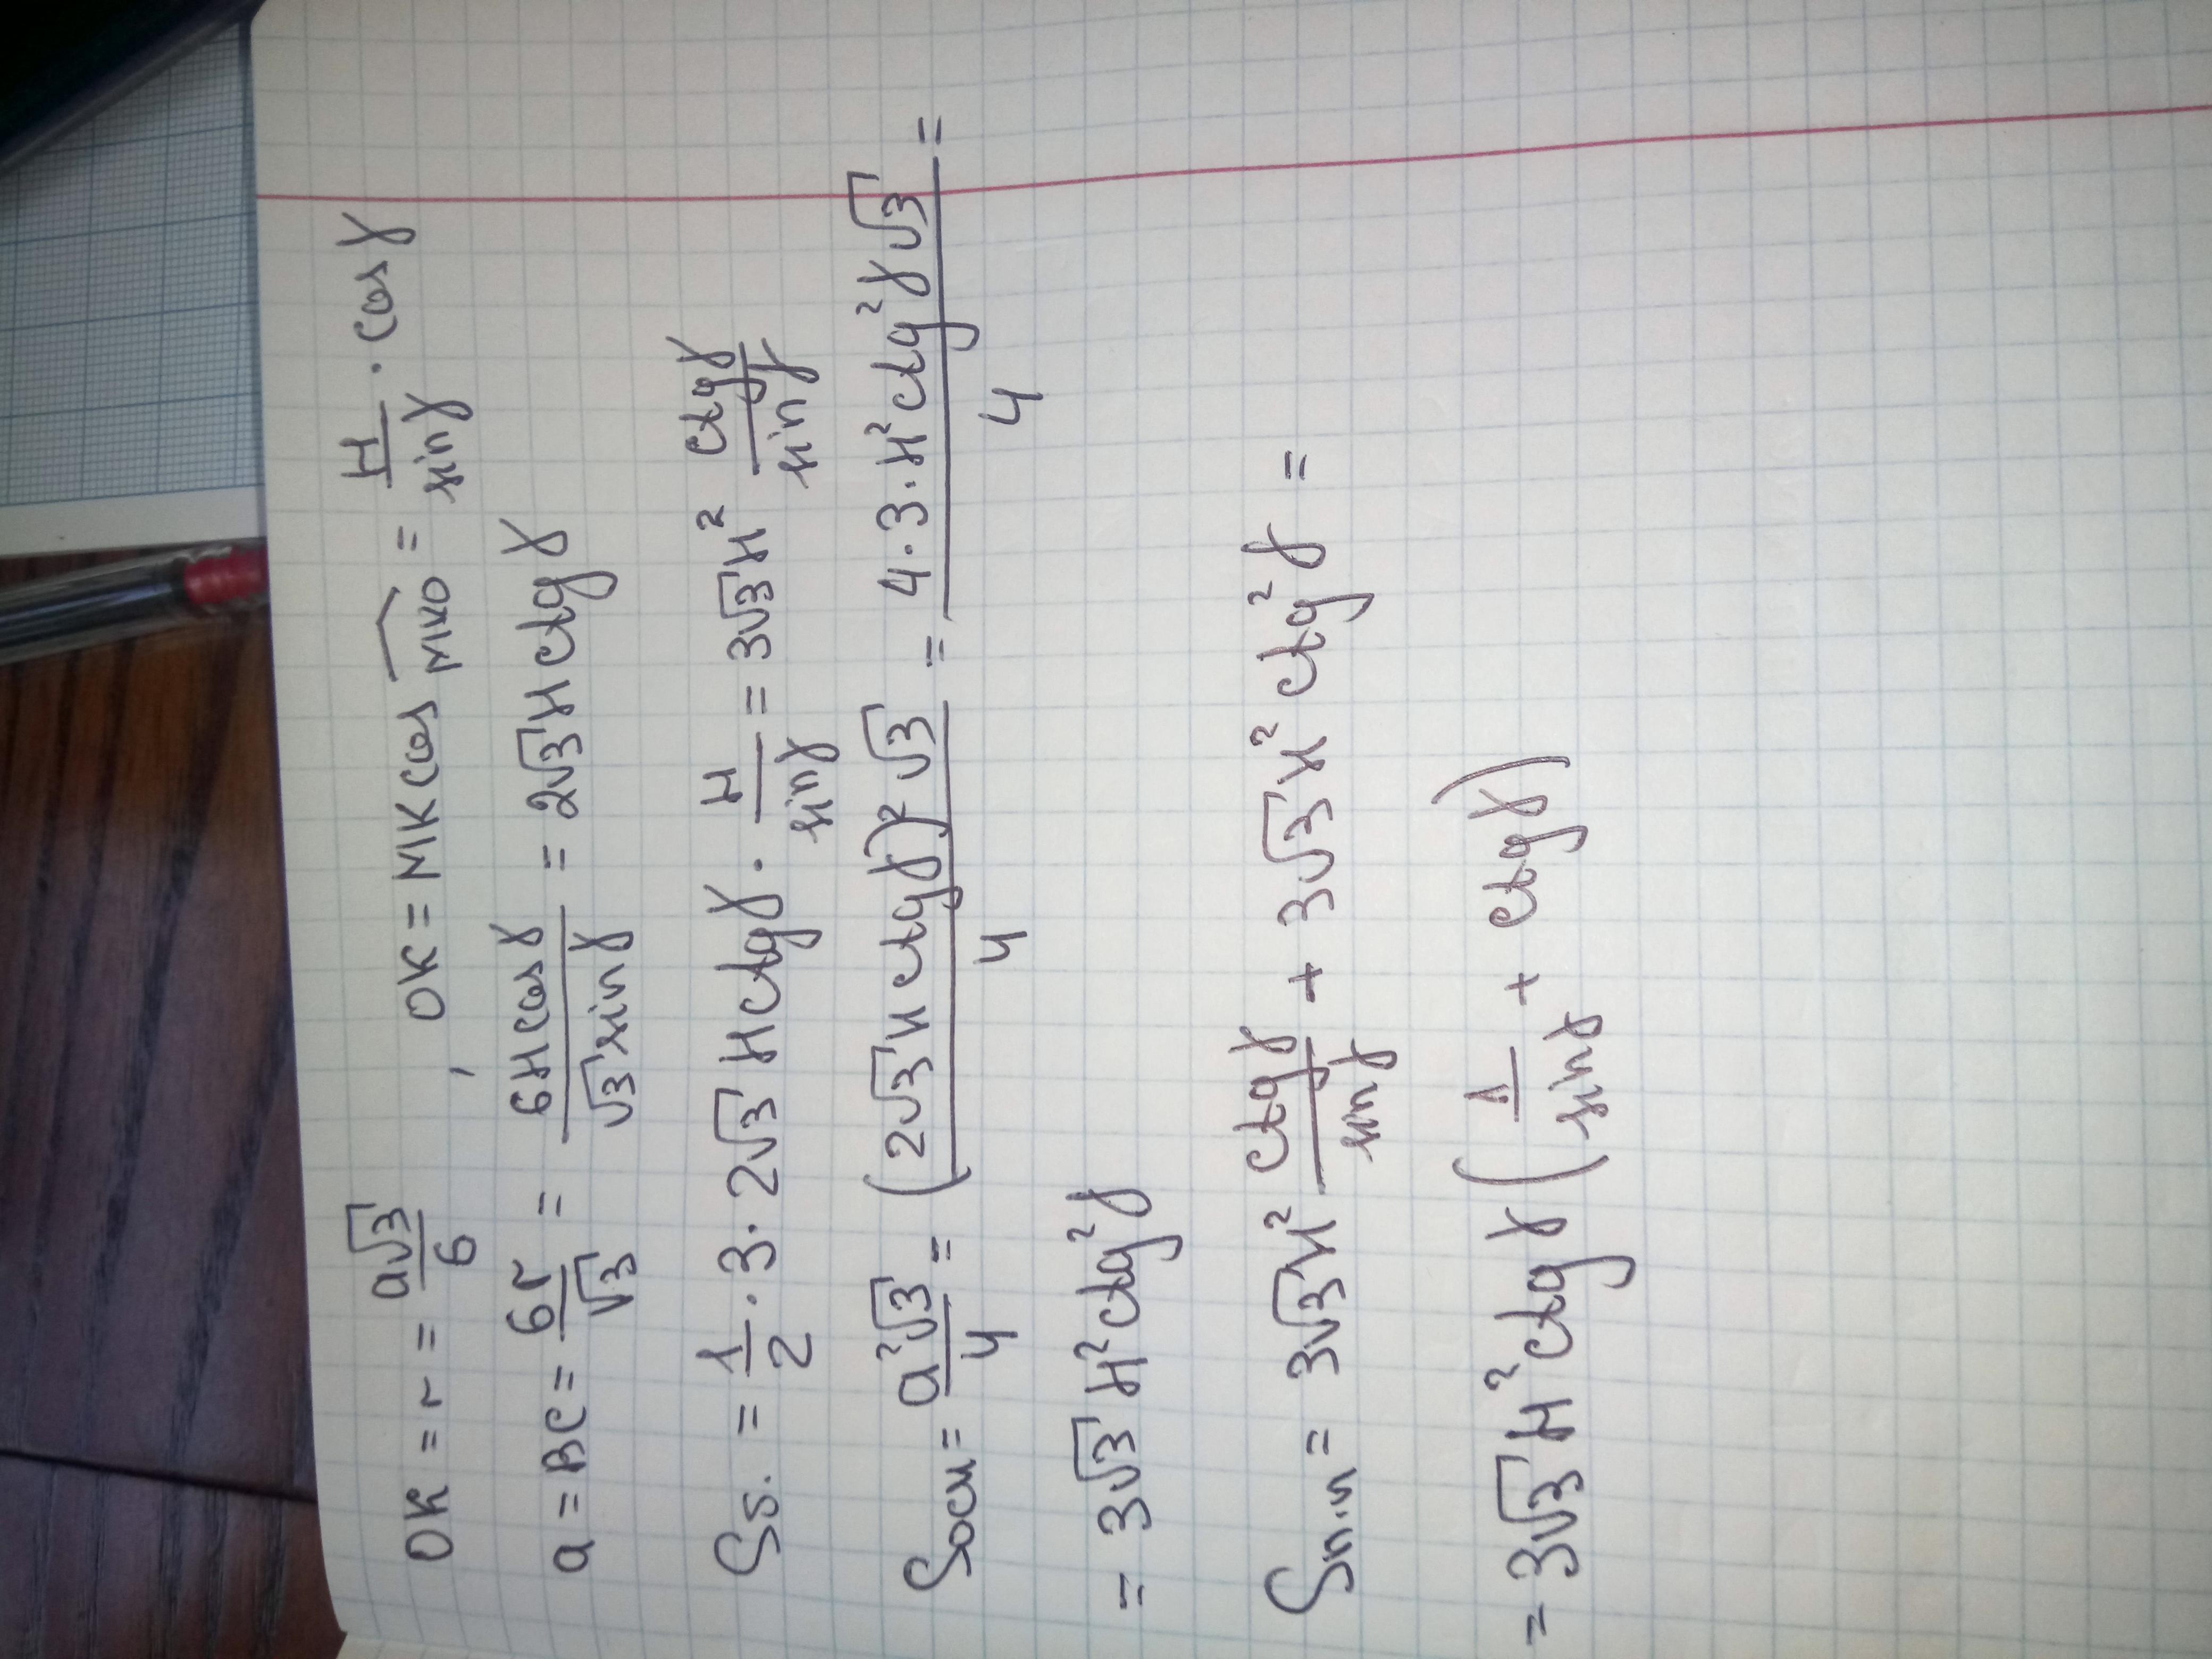 OK = r = a√3/6 , OK = MK cos MKO = H/sinγ · cosγ
a = BC = 6r/√3 = 6H cosγ/√3 sinγ = 2√3 H ctgγ
Sδ. = 1/2 · 3 · 2√3 H ctgγ · H/sinγ = 3√3 H² ctgγ/sinγ
Sосн = a²√3/4 = (2√3 H ctgγ)² √3/4 = 4·3·H² ctg²γ √3/4 =
= 3√3 H² ctg²γ
Sп.п = 3√3 H² ctgγ/sinγ + 3√3 H² ctg²γ =
= 3√3 H² ctgγ (1/sinγ + ctgγ)